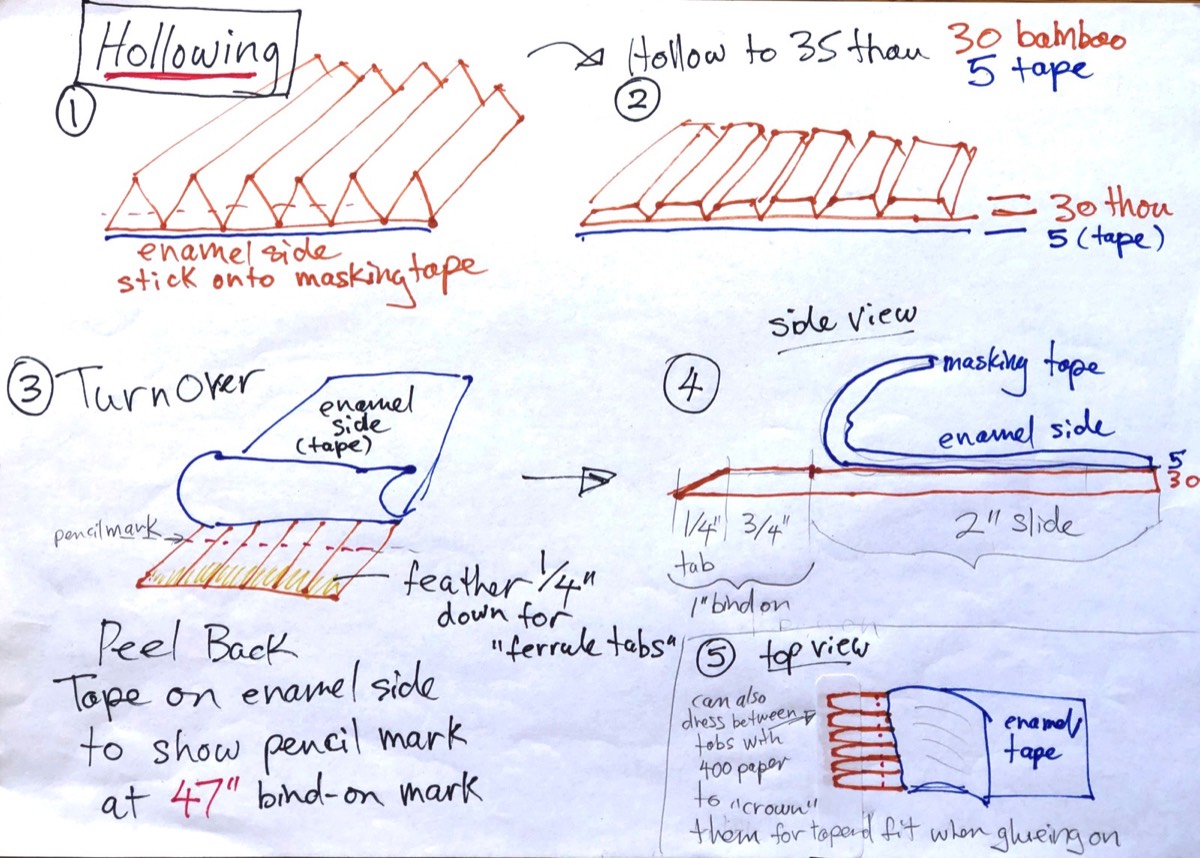 Hollowing
①
Hollow to 35 thou
30 bamboo
5 tape
②
enamel side
stick onto masking tape
= 30 thou
5 (tape)
③ Turnover
enamel
side
(tape)
pencil mark
feather 1/4"
down for
"ferrule tabs"
Peel Back
Tape on enamel side
to show pencil mark
at 47" bind-on mark
④
side view
masking tape
enamel side
5
30
1/4" 3/4"
2" slide
tab
1" bind on
⑤ top view
can also
dress between
tabs with
400 paper
to "crown"
them for taperd fit when glueing on
enamel
tape